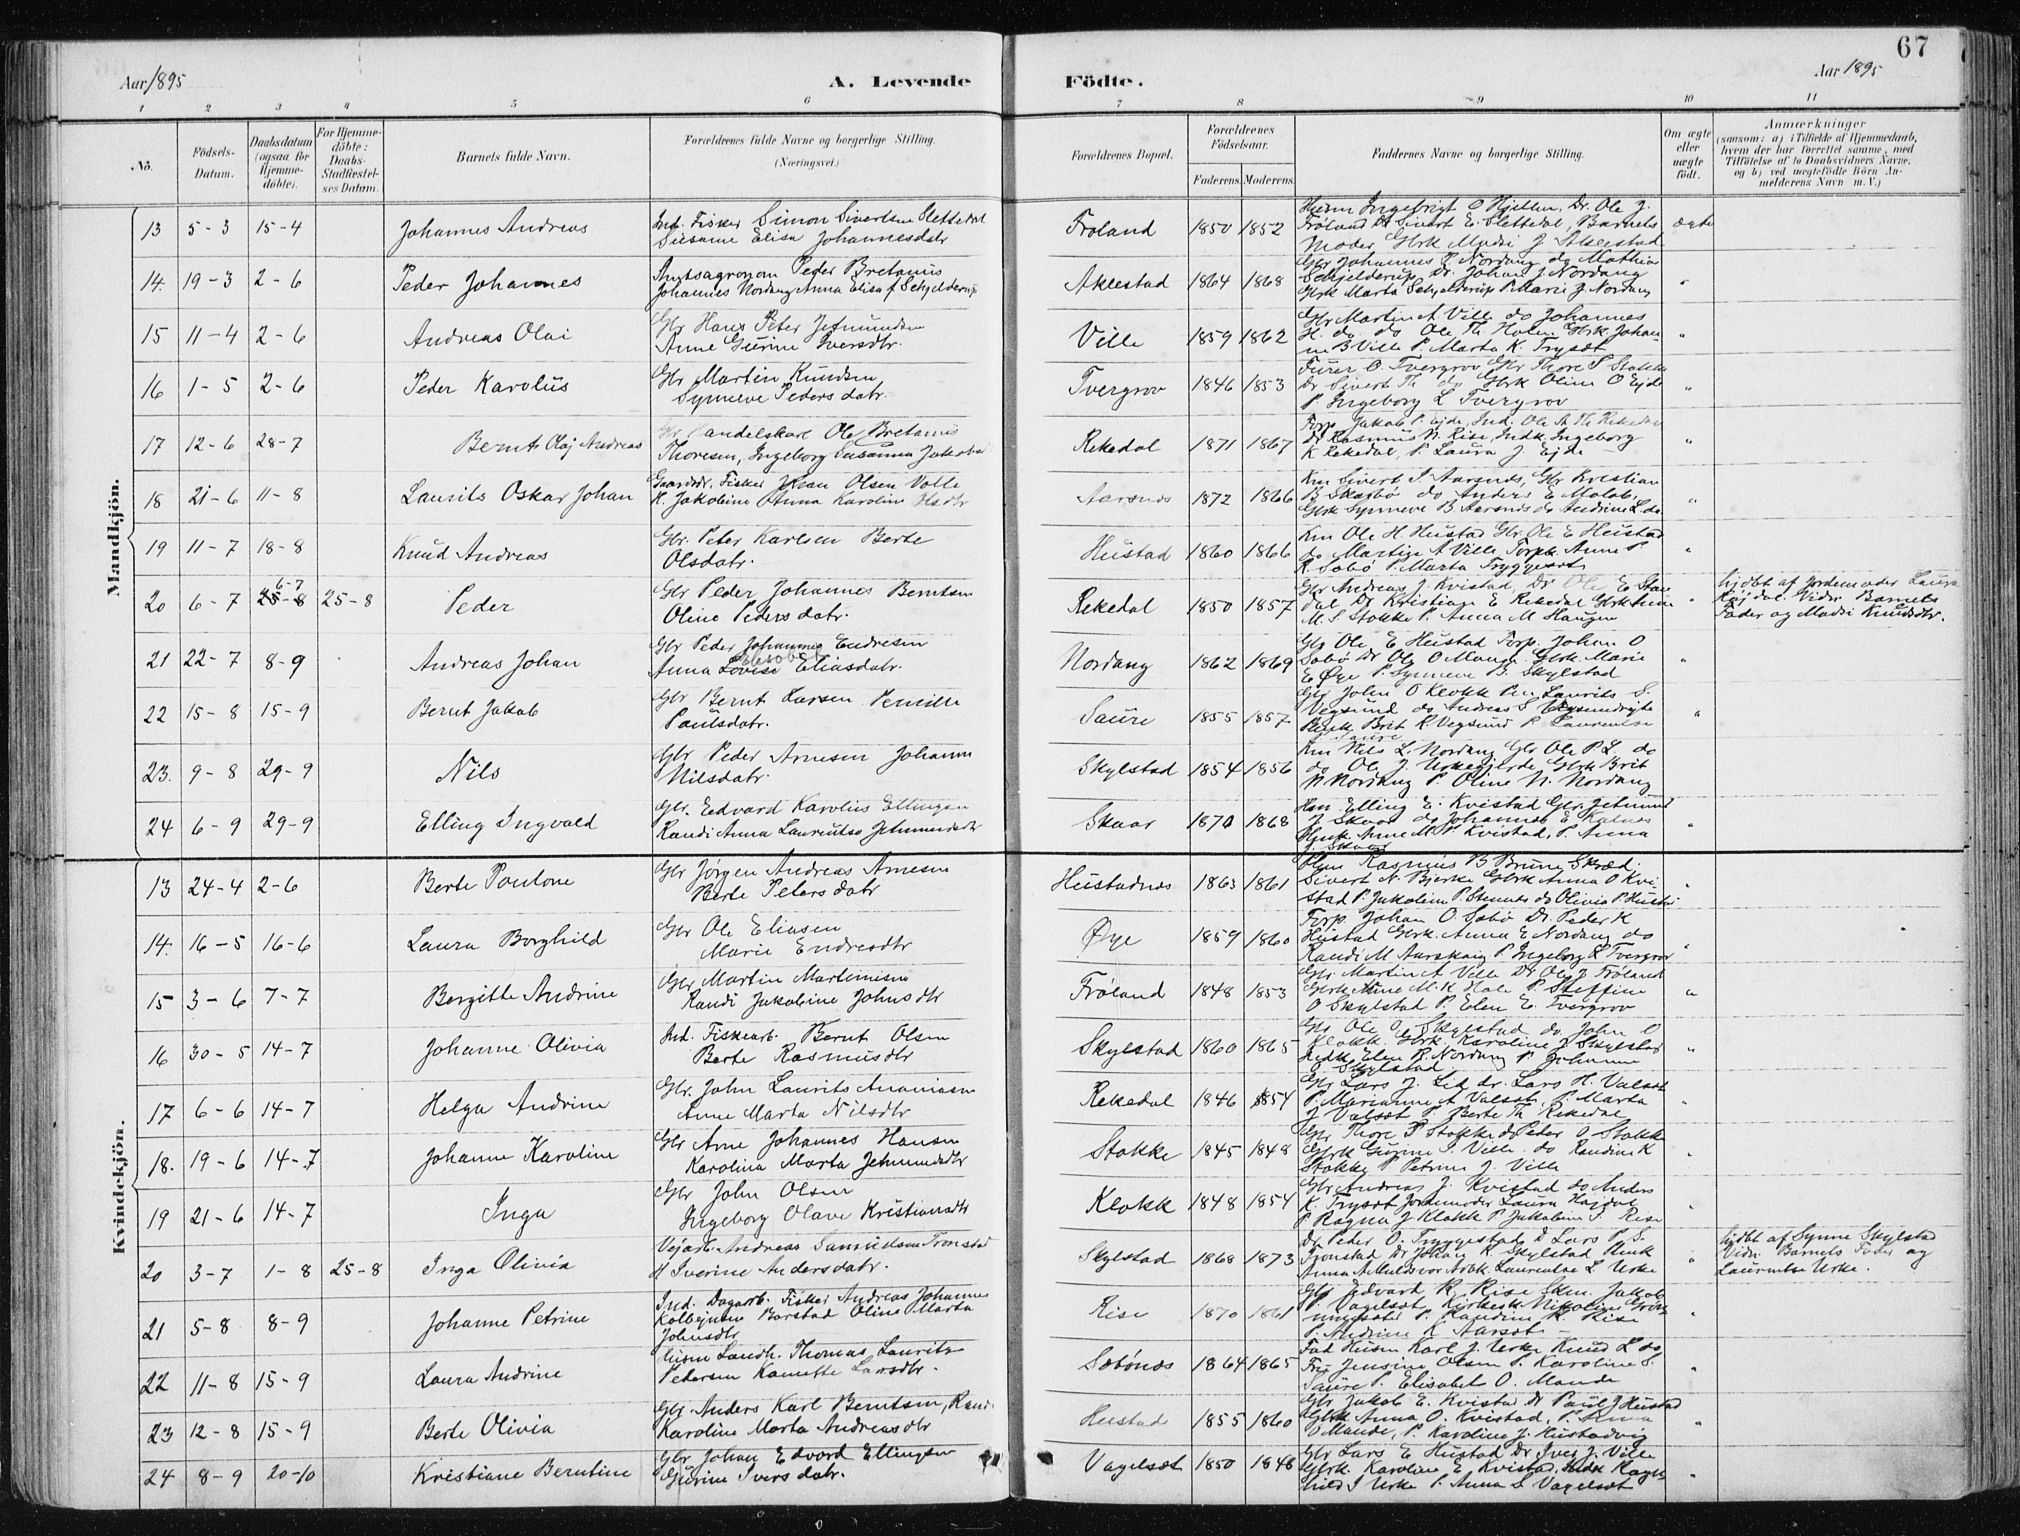 67
Aar 1895
A. Levende
Födte.
Aar 1895
1 2 3 4 5 6 7 8 9 10 11
No.
Födsels-Datum.
Daabsdatum (ogsaa for Hjemmedöbte).
For Hjemmedöbte: Daabs-Stadfæstelses Datum.
Barnets fulde Navn.
Forældrenes fulde Navne og borgerlige Stilling. (Næringsvei.)
Forældrenes Bopæl.
Forældrenes Födselsaar.
Faderens. Moderens.
Faddernes Navne og borgerlige Stilling.
Om ægte eller uægte födt.
Anmærkninger
(saasom: a) i Tilfælde af Hjemmedaab, hvem der har forrettet samme, med Tilföielse af to Daabsvidners Navne, og b) ved uægtefödte Börn Anmelderens Navn m. V.)
Mandkjön.
13 5-3 15-4 Johannes Andreas
Ind. Fisker Simon Sivertsen Slettedal
Susanne Elisa Johannesdatr
Frøland 1850 1852
Moder Gbrk Madsi J Aklestad
ægte
14. 19-3 2-6 Peder Johannes
Amtsagronom Peder Bretanus
Johannes Nordang Anna Elisa f. Schjelderup
Aklestad 1864 1868
Gbr Johannes P. Nordang do Mathias
Schjelderup Dr. Johan J Nordang
Gbrk Marta Schjelderup P. Marie J Nordang
"
15 11-4 2-6 Andreas Olai
Gbr Hans Peter Jetmundsen
Anne Gurine Iversdtr.
Ville 1859 1862
Gbr Martin A Ville do Johannes
H. do do Ole Th. Holen Gbrk Johan-
ne B Ville P. Marta K. Trysæt
"
16 1-5 2-6 Peder Karolus
Gbr Martin Knudsen
Synneve Pedersdatr.
Tvergrov 1846 1853
Furer O. Tvergrov Gbr Thore P Stokke
Dr Sivert Th do Gbrk Oline O Ejde
P. Ingeborg L Tvergrov
"
17 12-6 28-7 Bernt Olaj Andreas
Handelskarl Ole Bretanus
Thoresen, Ingeborg Susanna Jakobsd
Rekedal 1871 1867
Dr Rasmus N. Rise, Indk. Ingeborg
K Rekedal, P Laura J. Ejde
"
18 21-6 11-8 Laurits Oskar Johan
Gaardbr. Fisker Johan Olsen Volle
K. Jakobine Anna Karoline
Aarsnes 1872 1866
Km Sivert I Aarsnes, Gbr Kristian
B Skarbø do Anders E Molab,
Gbrk Synneve B Aarsnes do Andrine L. do
"
19 11-7 18-8 Knud Andreas
Gbr. Peter Karlsen Berte
Olsdatr.
Hustad 1860 1866
Km Ole H Hustad Gbr. Ole E Hustad
do Martin A Ville Anne P
R. Sæbø P. Marta Tryggesæt
"
20 6-7 6-7 25-8 25-8 Peder
Gbr Peder Johannes Berntsen
Oline Pedersdatr.
Rekedal 1850 1857
Gbr Andreas J. Kvistad Dr Ole E Stav-
dal Dr Kristian E Rekedal Gbrk Anne
M. S Stokke P. Anna M Haugen
"
hjdbt af Jordemoder Laura
Højdal. Vidn Barnets
Fader og Madsi Knudsdtr.
21 22-7 8-9 Andreas Johan
Gbr Peder Johannes Endresen
Anna Elisabet Eliasdatr.
Nordang 1862 1869
Gbr Ole E Hustad Torp. Johan O
Sæbø Dr Ole O Mande Gbrk. Marie
E Øye P. Synneve B. Skylstad
"
22 15-8 15-9 Bernt Jakob
Gbr Bernt Larsen Pernille
Paulsdatr.
Saure 1855 1857
Gbr John O Klokk Pen Laurits S.
Vegsund do Andreas S Vegsundnyte
Brit R. Vegsund P Laurentse
Saure
"
23. 9-8 29-9 Nils
Gbr Peder Arnesen Johanne
Nilsdatr.
Skylstad 1854 1856
Km Nils L. Nordang Gbr Ole P. L. do
do Ole J. Urkegjerde Gbrk Brit
N Nordang P. Oline N. Nordang
"
24 6-9 29-9 Elling Ingvald
Gbr. Edvard Karolius Ellingsen
Randi Anna Laurentse Jetmundsdtr
Skaar 1870 1868
Elling E. Kvistad Gbr. Jetmund
J. Skaar do Johannes E Kalnes
Anne M. P Kvistad, P. Anna
J. Skaar
"
Kvindekjön.
13 24-4 2-6 Berte Pauline
Gbr Jørgen Andreas Arnesen
Berte Petersdatr
Hustadnes 1863 1861
Rasmus B Brune Skræd.
Sivert N. Bjerke Gbrk Anna O Kvi-
stad P. Jakobine P. Stennes do Olivia P. Hustad
"
14. 16-5 16-6 Laura Borghild
Gbr Ole Eliasen
Marie Endresdtr
Øye 1859 1860
Torp. Johan O. Sæbø Dr. Peder K
Hustad Gbrk. Anna E Nordang do
Randi M Aarskaug P Ingeborg L Tvergrov
"
15 3-6 7-7 Bergitte Andrine
Gbr Martin Martinusen
Randi Jakobine Johnsdtr
Frøland 1848 1853
Gbr. Martin A Ville Dr Ole J Frøland
Gbrk Anne M. K Hole P Steffine
O Skylstad P. Elen E. Tvergrov
"
16 30-5 14-7 Johanne Olivia
Ind. Fiskearb. Bernt Olsen
Berte Rasmusdtr
Skylstad 1860 1865
Gbr Ole O. Skylstad do John O
Klokk. Gbrk Karoline J Skylstad
Indk Elen R. Nordang P Johanne
O Skylstad
"
17 6-6 14-7 Helga Andrine
Gbr. John Laurits Ananiasen
Anne Marta Nilsdtr
Rekedal 1846 1854
Gbr Lars J. Lid dr. Lars H. Valsæt
P. Marianne A Valsæt, P. Marta
J Valsæt P. Berte Th. Rekedal
"
18. 19-6 14-7 Johanne Karoline
Gbr Arne Johannes Hansen
Karolina Marta Jetmundsdtr
Stokke 1845 1848
Gbr Thore P Stokke do Peder O Stokke
Gbrk Gurine S. Ville do Randine K
Stokke P Petrine J. Ville
"
19 21-6 14-7 Inga
Gbr John Olsen
Ingeborg Olave Kristiansdtr
Klokk 1848 1854
Gbr Andreas J. Kvistad do Anders
K. Trysæt Jordemoder Laura Højdal
P Ragna J Klokk P Jakobine S. Rise
"
20 3-7 1-8 25-8 Inga Olivia
Vejarb. Andreas Samuelsen Tronstad
H Iverine Andersdatr.
Skylstad 1868 1873
Dr Peder O. Tryggestad D Lars P. S.
Tronstad Dr Johan R Skylstad
Anna A Arbk. Laurentse L Urke
"
hjdbt af Synne Skylstad
Vidn. Barnets Fader og
Laurentse Urke.
21 5-8 8-9 Johanne Petrine
Ind. Dagarb. Fisker Andreas Johannes
Kolbejnsen Barstad Oline Marta
Johnsdtr
Rise 1870 1861
Gbr Edvard R. Rise Skm Jakob
P. Vagelsæt Kirkesk. Nikoline Grøn-
ningsæter P. Randine R. Rise
P. Andrine K Aarsæt
"
22 11-8 15-9 Laura Andrine
Husm Landh. Thomas Laurits
Pedersen Kanutte Larsdtr.
Sæbønes 1864 1865
Fad. Husm Karl J. Urke Knud L do
Fru Jensine Olsen P. Karoline S.
Saure P. Elisabet O. Mande
"
23 12-8 15-9 Berte Olivia
Gbr. Anders Karl Berntsen, Randi
Karoline Marta Andreasdtr
Hustad 1855 1860
Gbr Jakob E. Kvistad Dr Paul J Hustad
Gbrk Anna O. Kvistad, P. Anna
O Mande, P. Karoline J. Hustadvig
"
24 8-9 20-10 Kristiane Berntine
Gbr Johan Edvard Ellingsen
Gurine Iversdatr.
Vagelsæt 1850 1848
Gbr Lars E Hustad Dr Iver J. Ville
Gbrk. Karoline E Kvistad, Indk Ragn-
hild J Urke P. Anna S Vagelsæt
"